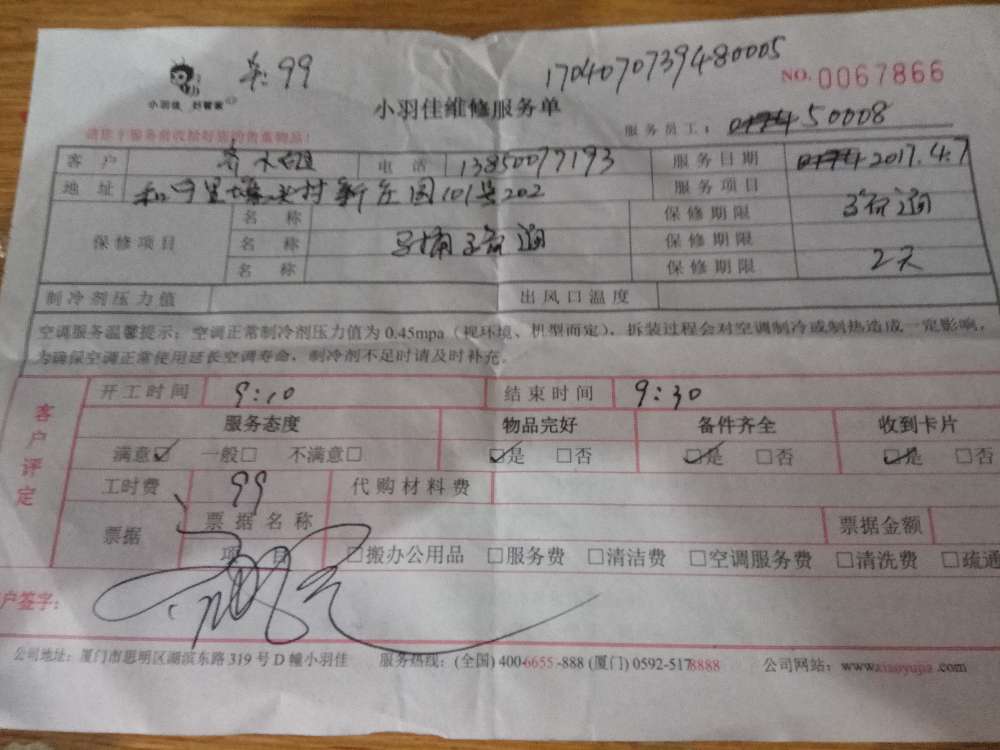 吴: 99
1704070739480005
NO. 0067866
小羽佳 好管家
小羽佳维修服务单
服务员工: 50008
客户 电话 13850077193 服务日期 2017.4.7
地址 服务项目
保修项目 名称 保修期限
名称 保修期限
名称 保修期限 2天
制冷剂压力值 出风口温度
空调服务温馨提示: 空调正常制冷剂压力值为 0.45mpa (视环境、机型而定), 拆装过程会对空调制冷或制热造成一定影响。
为确保空调正常使用延长空调寿命, 制冷剂不足时请及时补充。
客户评定
开工时间 9:10 结束时间 9:30
服务态度 物品完好 备件齐全 收到卡片
满意☑ 一般□ 不满意□ ☑是 □否 ☑是 □否 ☑是 □否
工时费 99 代购材料费
票据 票据名称 票据金额
项目 □搬办公用品 □服务费 □清洁费 □空调服务费 □清洗费 □疏通
户签字:
公司地址: 厦门市思明区湖滨东路 319 号 D 幢小羽佳 服务热线: (全国) 400-6655-888 (厦门) 0592-5178888 公司网站: www.xiaoyujia.com